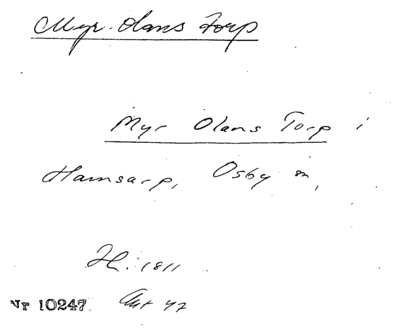 Myr-Olans Torp
Myr Olans Torp i
Hamsarp, Osby sn,
Hl: 1811
Nr 10247. Akt 47